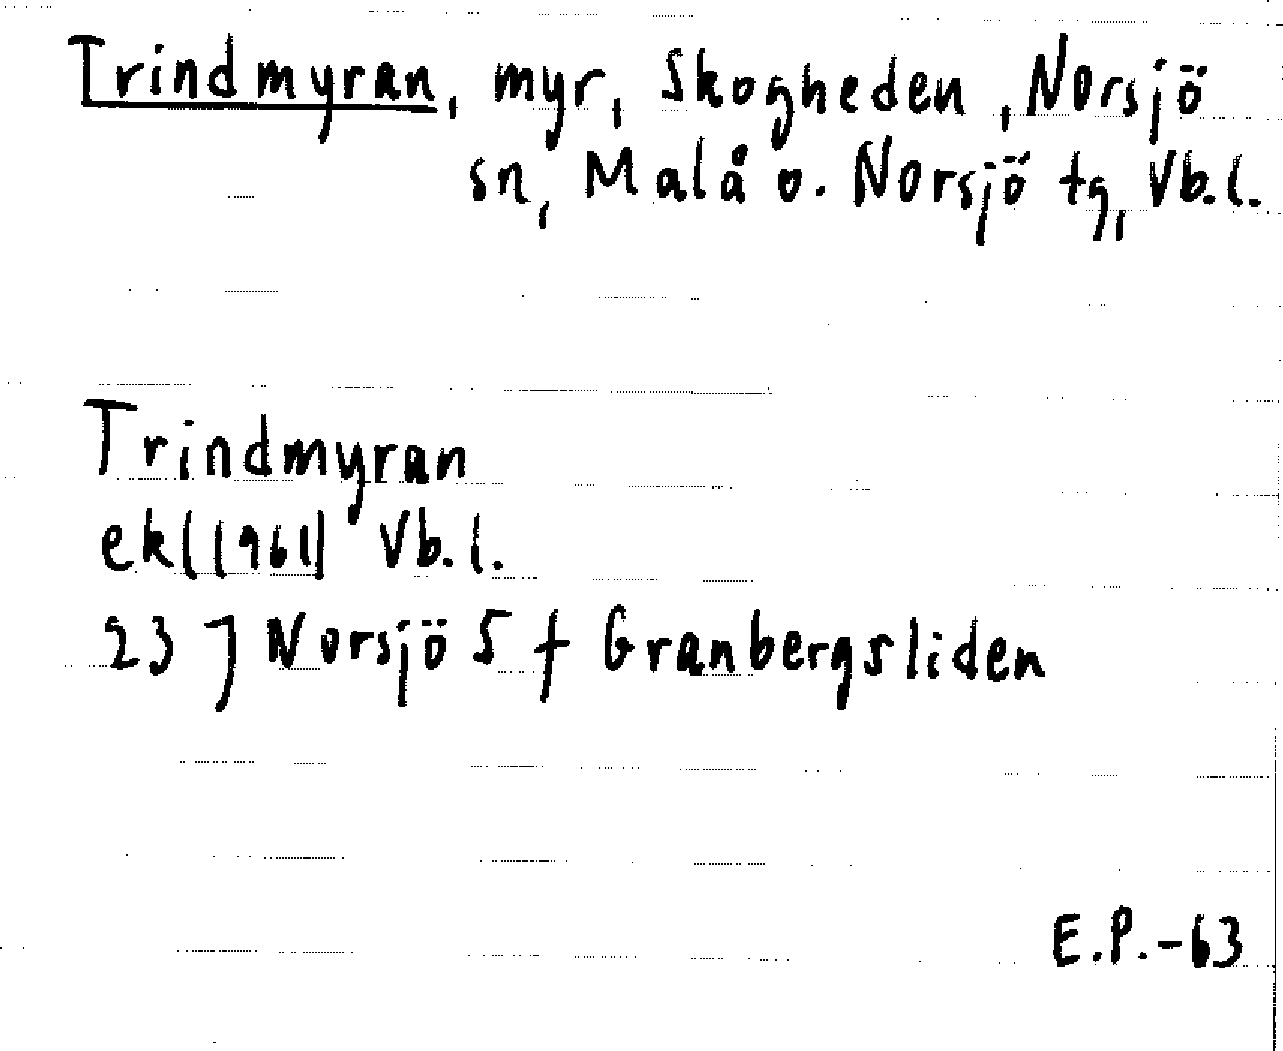 Trindmyran, myr, Skogheden, Norsjö
sn, Malå o. Norsjö tg, Vb.l.
Trindmyran
ek (1961) Vb.l.
23 J Norsjö 5 f Granbergsliden
E.P.-63